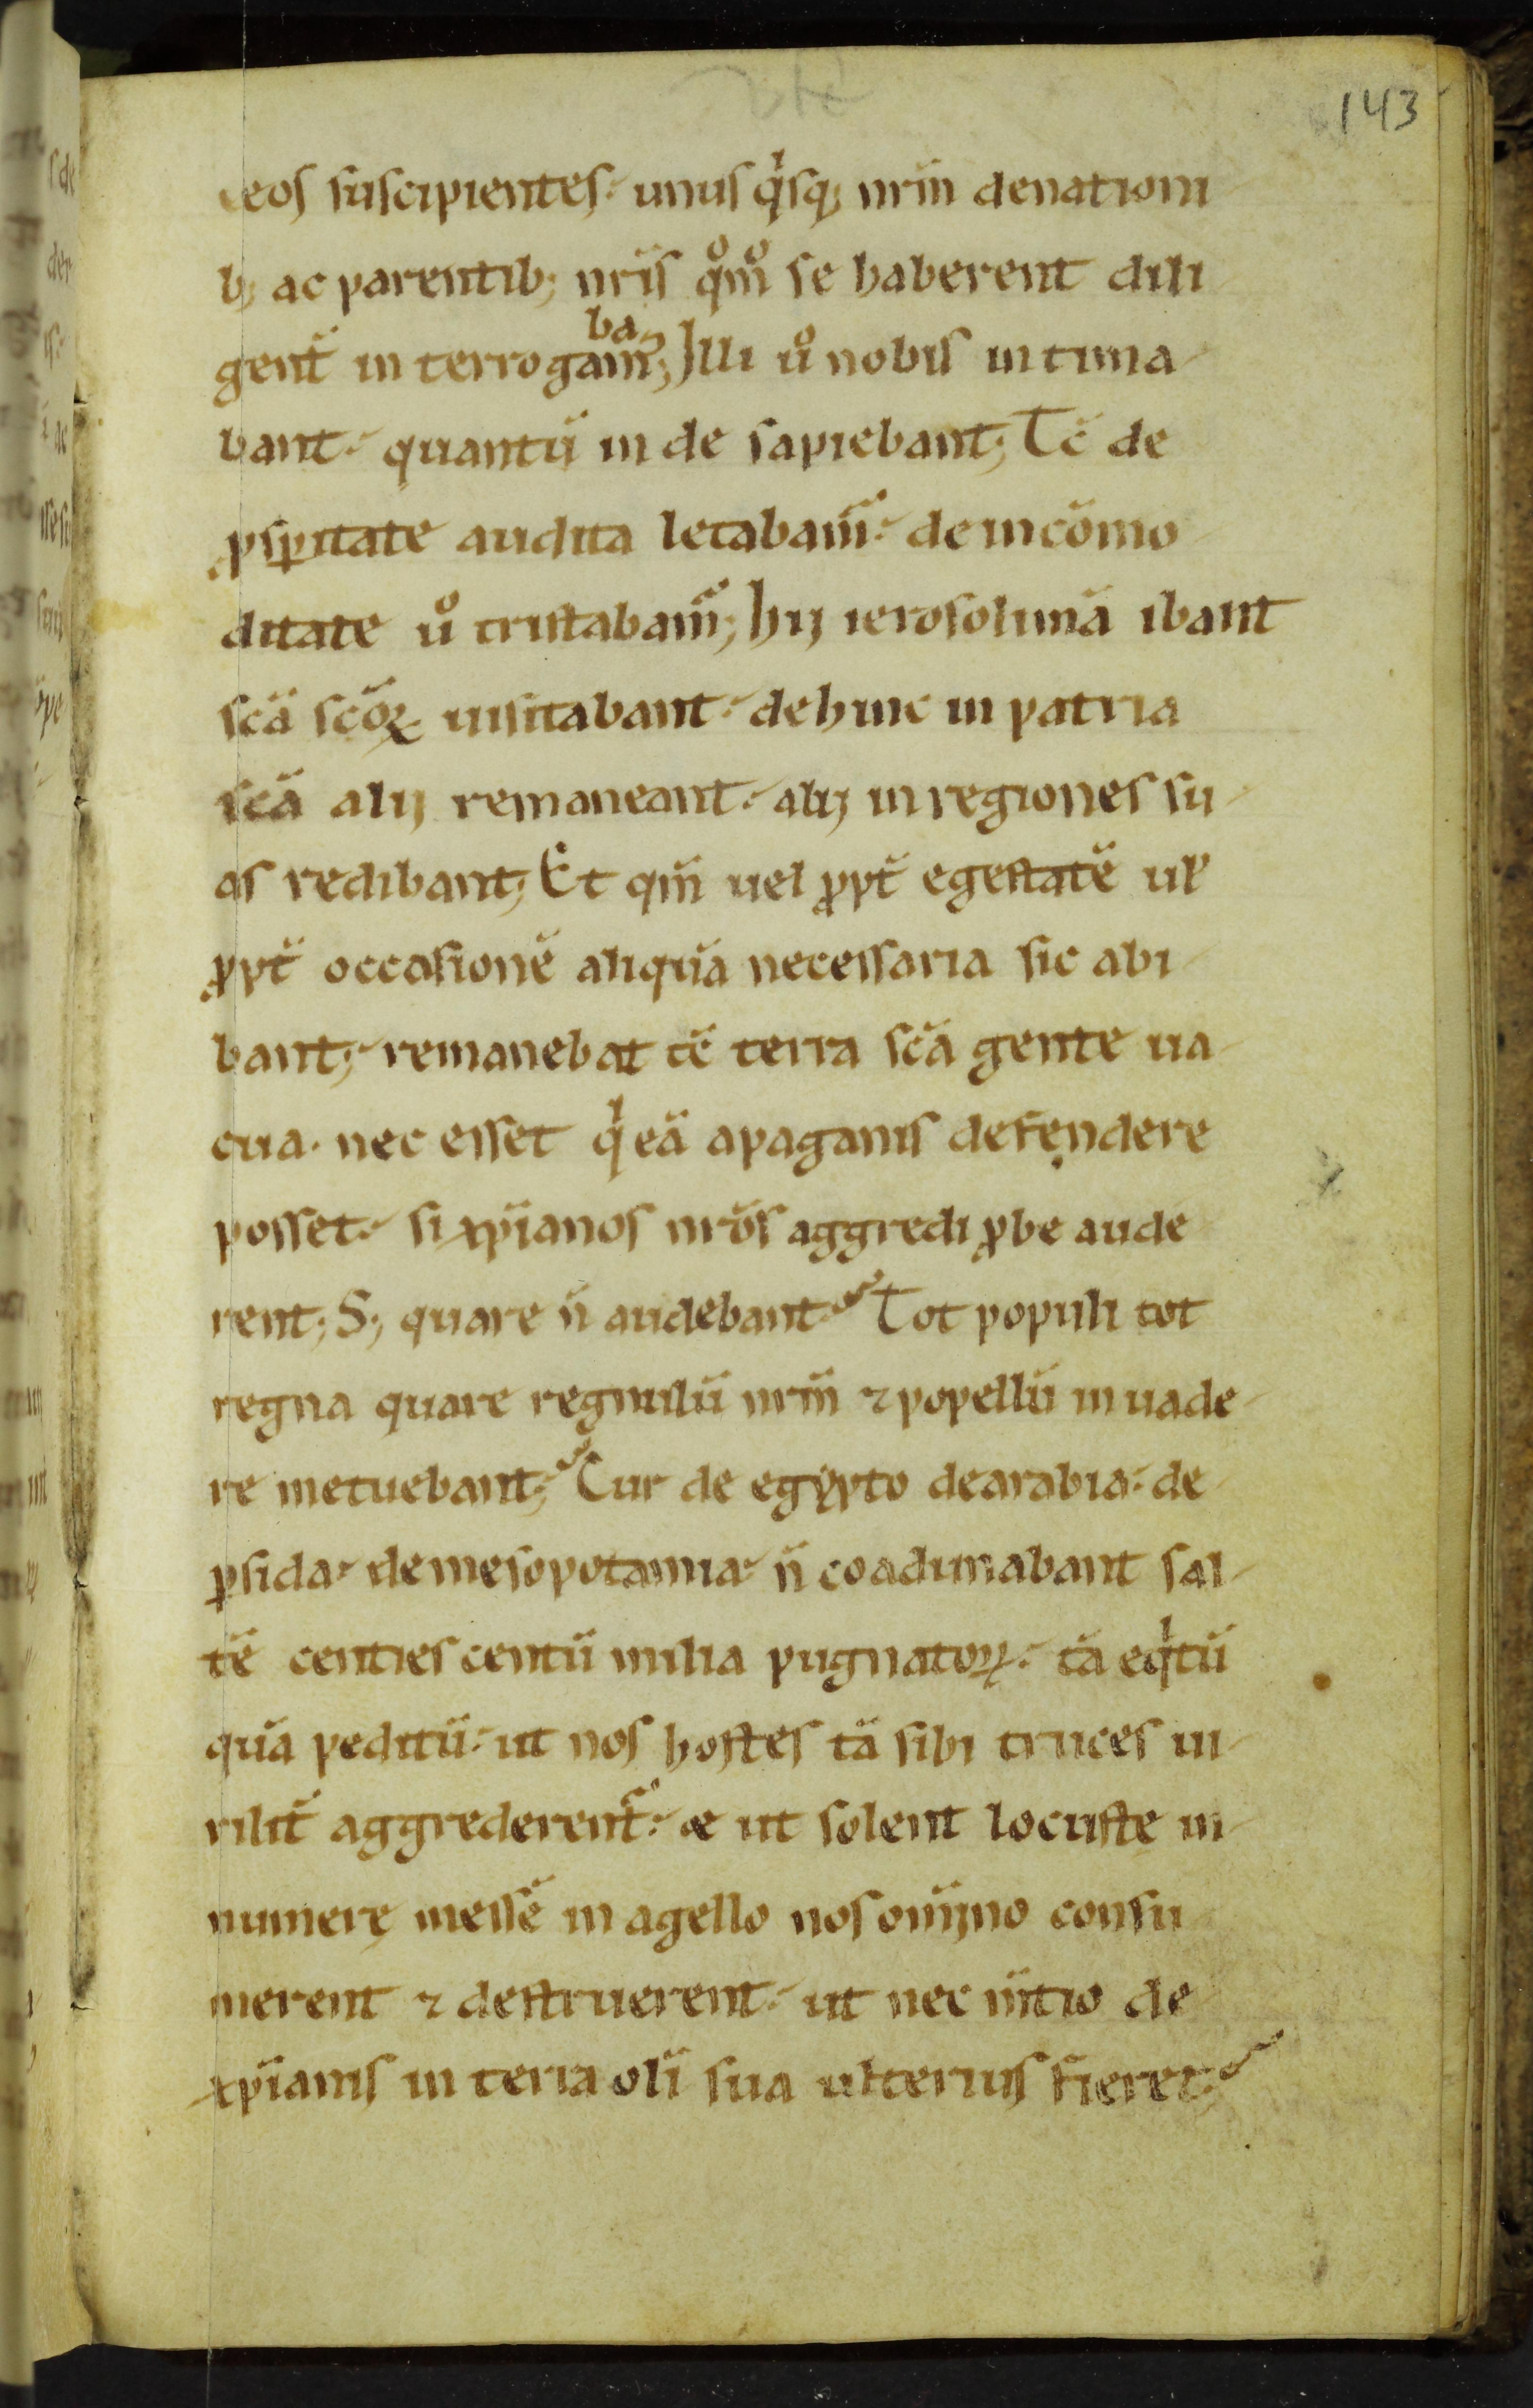 143
eos suscipientes. unus qͥsq; nrm̄ de nationi
b; ac parentib; nris̄ qͦmͦ se haberent dili
gent̄ in terrogabam᷒; Illi uͦ nobis intima
bant. quantū in de sapiebant; Tc̄ de
ꝓsꝑitate audita letabam᷒. de incōmo
ditate uͦ tristabam᷒; hij ierosolimā ibant
sc̄a sc̄oꝝ uisitabant. dehinc in patria
sc̄a alij remaneant. alij in regiones su
as redibant; Et qm̄ uel ꝓpt̄ egestatē ul̛
ꝓpt̄ occasionē aliquā necessaria sic abi
bant; remanebat tc̄ terra sc̄a gente ua
cua. nec esset qͥ eā a paganis defendere
posset. si xp̄ianos nrōs aggredi ꝓbe aude
rent; S; quare n̄ audebant. Tot populi tot
regna quare regnulū nrm̄ ⁊ popellū inuade
re metuebant; Cur de egypto de arabia. de
ꝑsida. de mesopotamia. n̄ coadunabant sal
tē centies centū milia pugnatoꝝ. tā eqͥtū
quā peditū. ut nos hostes tā sibi truces ui
rilit̄ aggrederent᷑. & ut solent locuste in
numerę messē in agello nos om̄ino consu
merent ⁊ destruerent. ut nec m̄tio de
xp̄ianis in terra olī sua ulterius fieret.